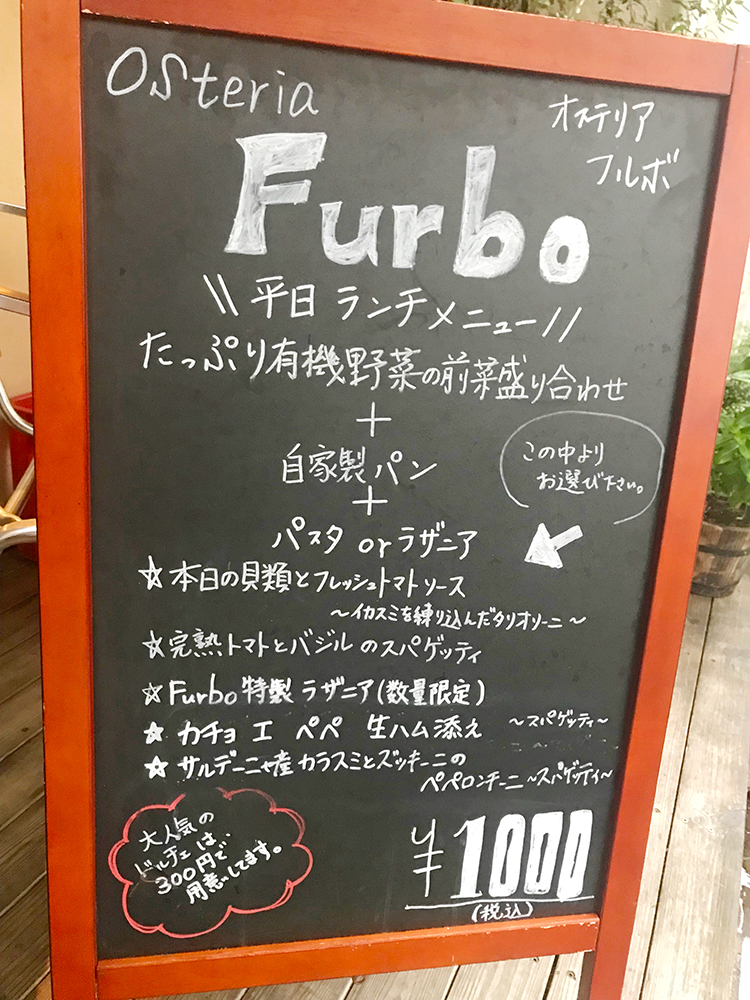 Osteria
オステリア
フルボ
Furbo
\\ 平日 ランチメニュー //
たっぷり有機野菜の前菜盛り合わせ
+
自家製パン
この中より
お選び下さい。
+
パスタ or ラザニア
☆本日の貝類とフレッシュトマトソース
～イカスミを練り込んだタリオリーニ～
☆完熟トマトとバジルのスパゲッティ
☆Furbo特製 ラザニア(数量限定)
☆ カチョ エ ペペ 生ハム添え ～スパゲッティ～
☆ サルデーニャ産 カラスミとズッキーニの
ペペロンチーニ ～スパゲッティ～
大人気の
ドルチェは、
300円で
用意してます。
¥1000
(税込)